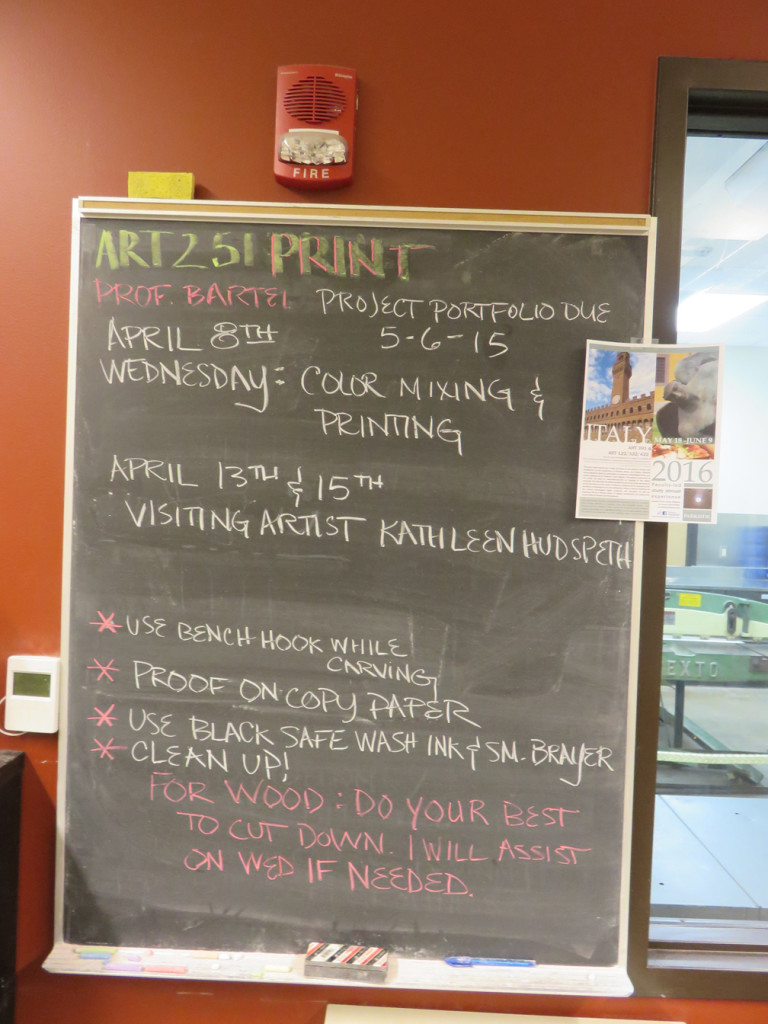 FIRE
ART 251 PRINT
PROF. BARTEL PROJECT PORTFOLIO DUE
APRIL 8TH 5-6-15
WEDNESDAY: COLOR MIXING &
PRINTING
APRIL 13TH & 15TH
VISITING ARTIST KATHLEEN HUDSPETH
* USE BENCH HOOK WHILE
CARVING
* PROOF ON COPY PAPER
* USE BLACK SAFE WASH INK & SM. BRAYER
* CLEAN UP!
FOR WOOD: DO YOUR BEST
TO CUT DOWN. I WILL ASSIST
ON WED IF NEEDED.
ITALY MAY 18-JUNE 8
2016
EXTO